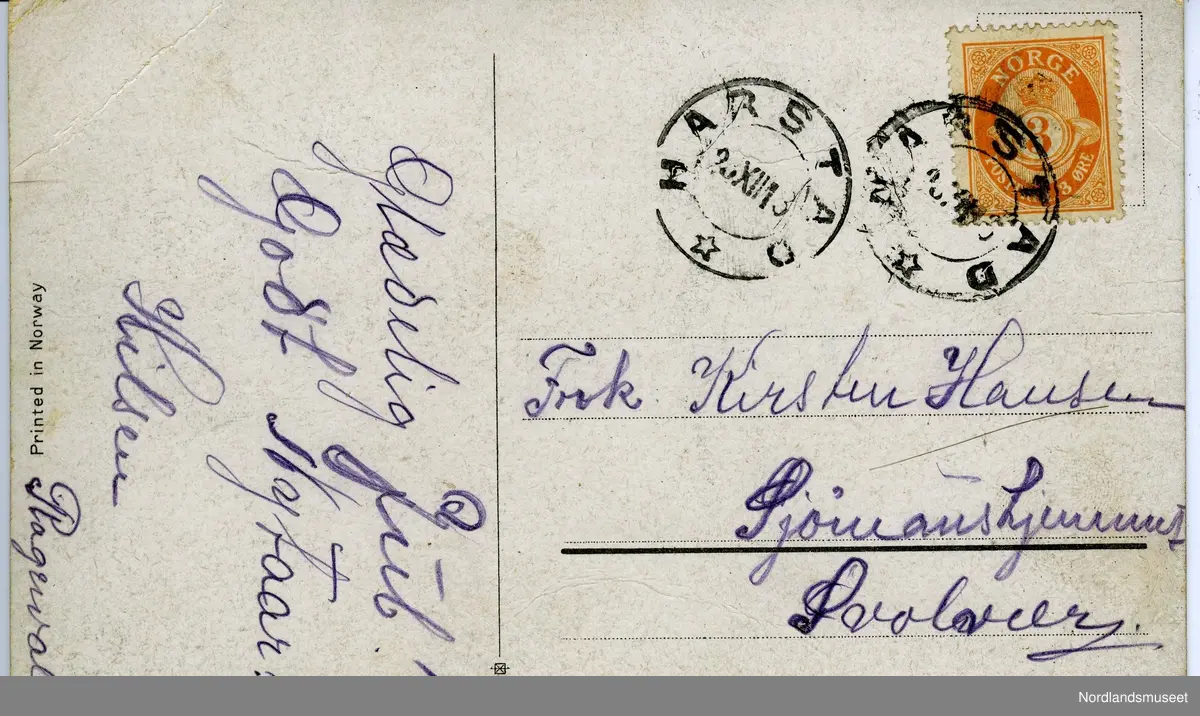 Glædelig Jul!
Godt Nytaar!
Hilsen
Ragnval
Printed in Norway
HARSTAD
HARSTAD
NORGE
3
POSTFRIM 3 ØRE
Frk Kirsten Hansen
Sjömanshjemmet
Svolvær.
Nordlandsmuseet